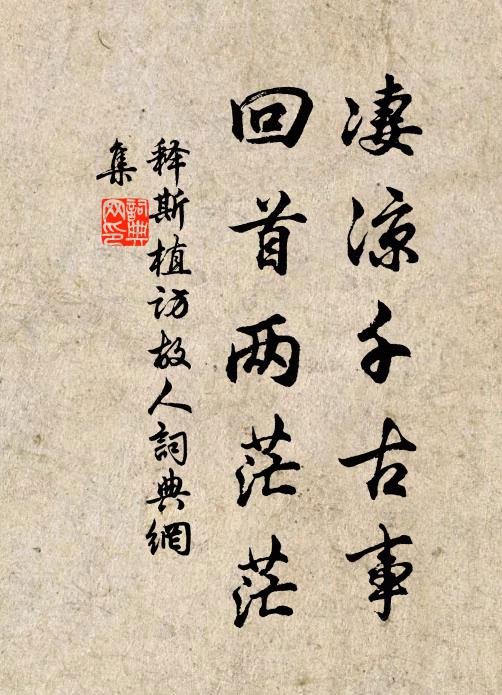 凄凉千古事
回首两茫茫
释斯植访故人詞典網
集
詞典
网印